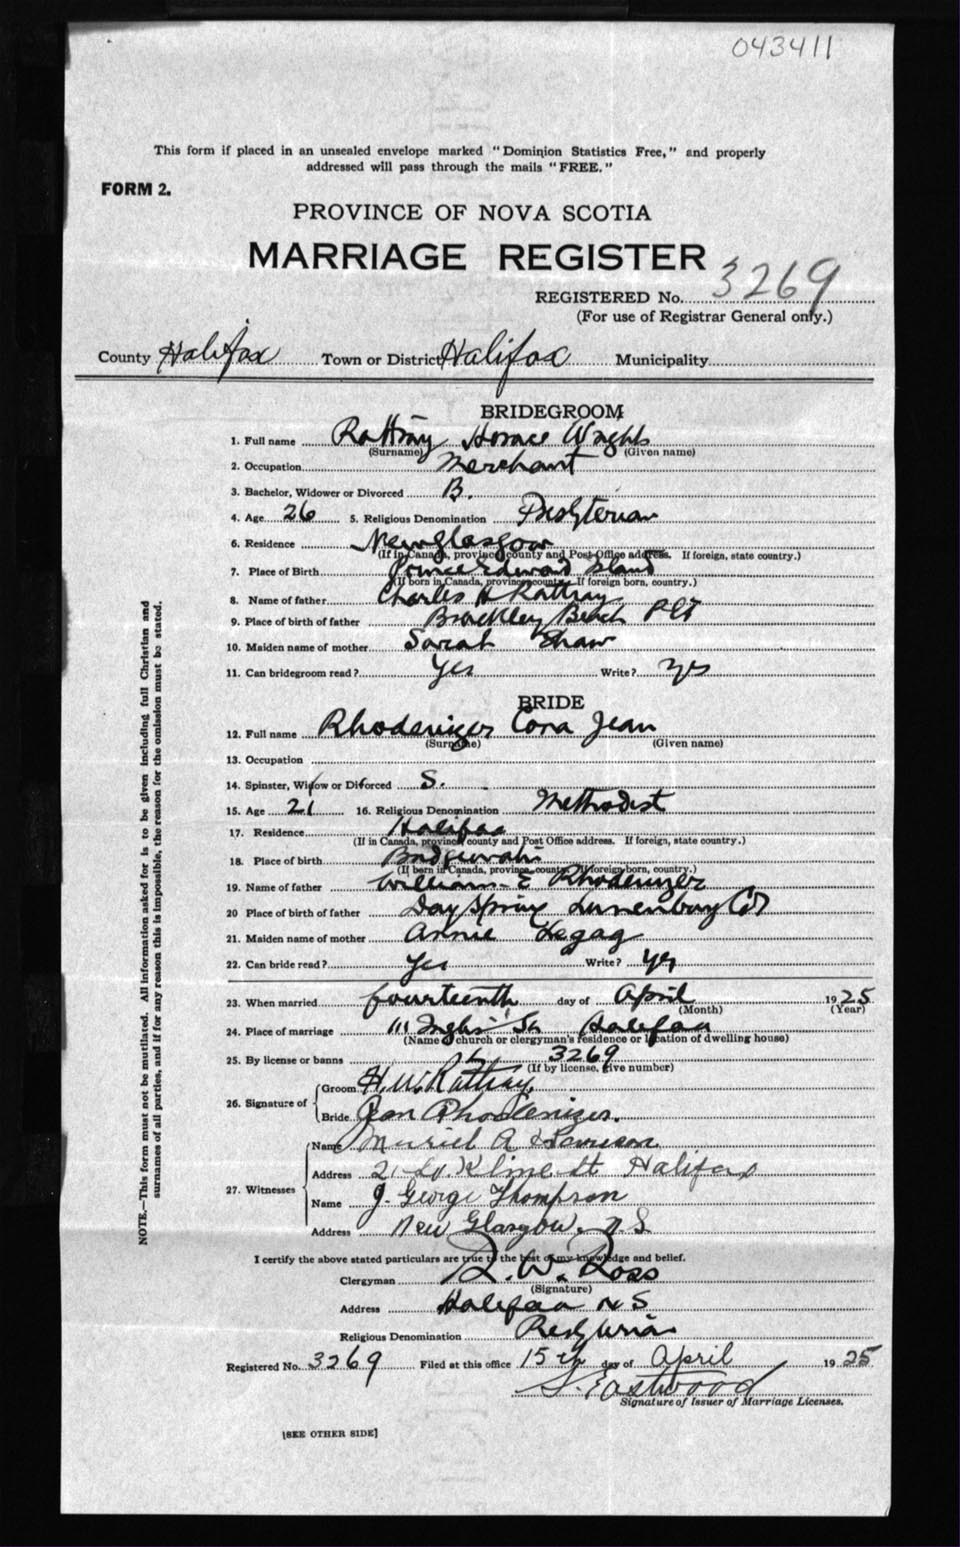 043411
This form if placed in an unsealed envelope marked "Dominion Statistics Free," and properly
addressed will pass through the mails "FREE."
FORM 2.
PROVINCE OF NOVA SCOTIA
MARRIAGE REGISTER
REGISTERED No. 3269
(For use of Registrar General only.)
County Halifax Town or District Halifax Municipality
BRIDEGROOM
1. Full name Rattray Horace Wright
(Surname) (Given name)
2. Occupation Merchant
3. Bachelor, Widower or Divorced B.
4. Age 26 5. Religious Denomination Presbyterian
6. Residence New Glasgow
(If in Canada, province, county and Post Office address. If foreign, state country.)
7. Place of Birth Prince Edward Island
(If born in Canada, province, county. If foreign born, country.)
8. Name of father Charles H Rattray
9. Place of birth of father Brackley Beach PEI
10. Maiden name of mother Sarah Shaw
11. Can bridegroom read? Yes Write? Yes
BRIDE
12. Full name Rhodenizer Cora Jean
(Surname) (Given name)
13. Occupation
14. Spinster, Widow or Divorced S.
15. Age 21 16. Religious Denomination Methodist
17. Residence Halifax
(If in Canada, province, county and Post Office address. If foreign, state country.)
18. Place of birth
(If born in Canada, province, county. If foreign born, country.)
19. Name of father William E Rhodenizer
20 Place of birth of father Day Spring Lunenburg Co
21. Maiden name of mother Annie
22. Can bride read? Yes Write? Yes
23. When married fourteenth day of April 1925
(Month) (Year)
24. Place of marriage 111 Inglis St Halifax
(Name of church or clergyman's residence or location of dwelling house)
25. By license or banns L 3269
(If by license, give number)
26. Signature of Groom H. W. Rattray
Bride Jean Rhodenizer.
27. Witnesses Name Muriel A
Address Kline St. Halifax
Name J. George Thompson
Address New Glasgow, N S
I certify the above stated particulars are true to the best of my knowledge and belief.
Clergyman R. W. Ross
(Signature)
Address Halifax N S
Religious Denomination Presbyterian
Registered No. 3269 Filed at this office 15th day of April 1925
S. Eastwood
Signature of Issuer of Marriage Licenses.
[SEE OTHER SIDE]
NOTE.—This form must not be mutilated. All information asked for is to be given including full Christian and
surnames of all parties, and if for any reason this is impossible, the reason for the omission must be stated.